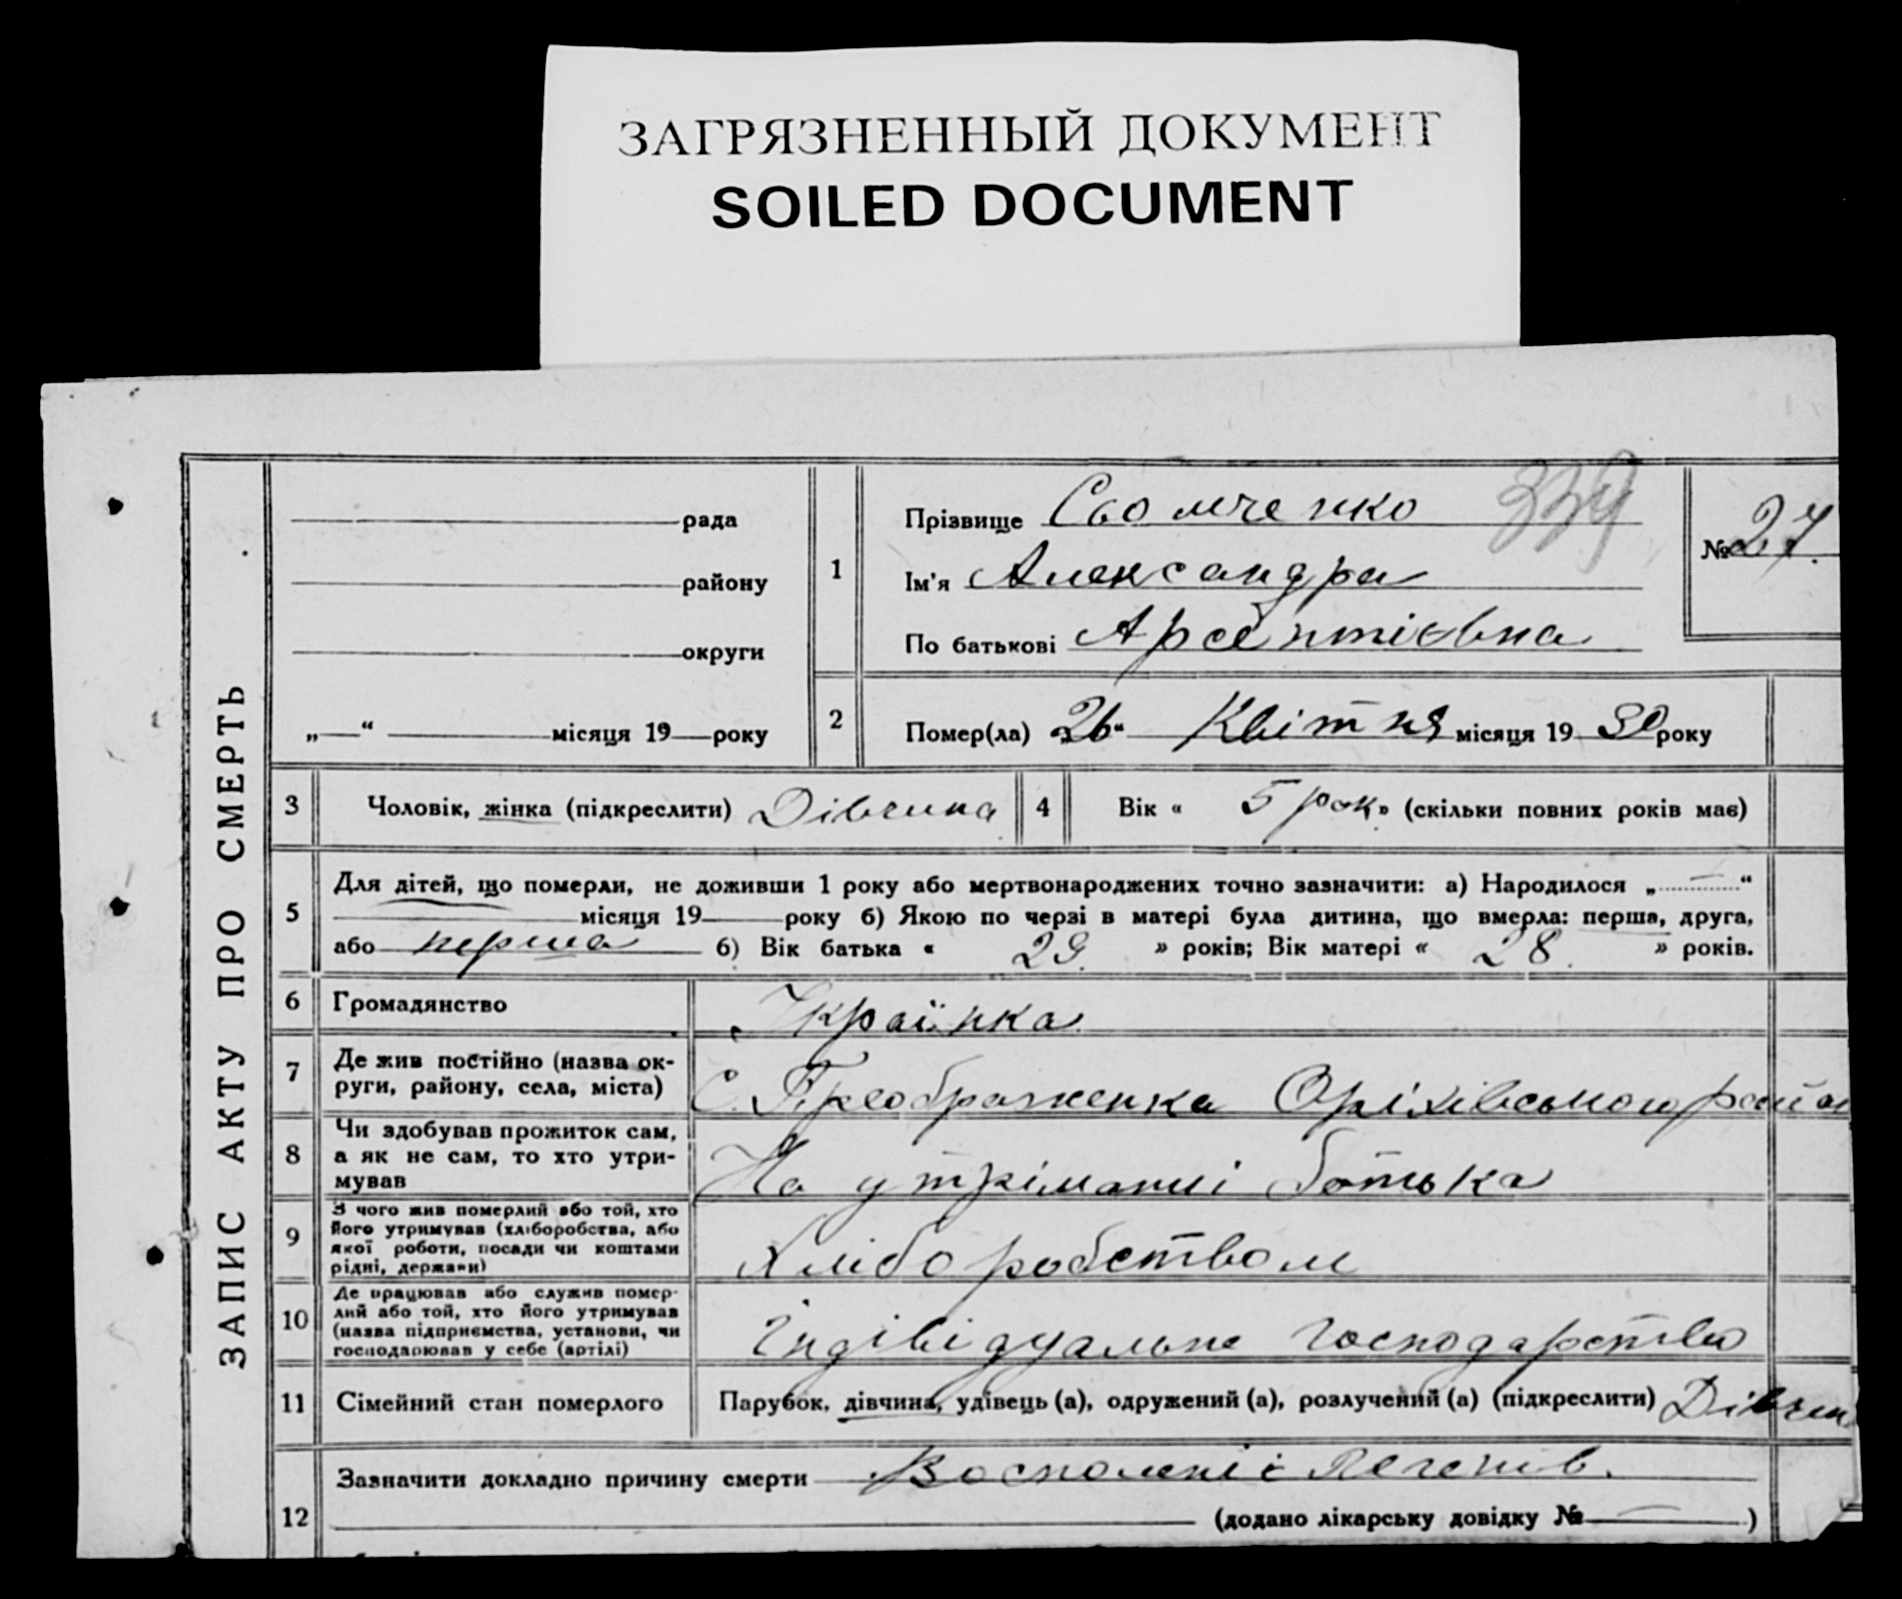 ЗАГРЯЗНЕННЫЙ ДОКУМЕНТ
SOILED DOCUMENT
ЗАПИС АКТУ ПРО СМЕРТЬ
рада
району
округи
„ “ місяця 19 року
1
Прізвище Сьомченко 339
Ім'я Александра
По батькові Арсентієвна
№ 27.
2
Помер(ла) „26“ Квітня місяця 19 30 року
3 Чоловік, жінка (підкреслити) Дівчина
4 Вік « 5 рок » (скільки повних років має)
5
Для дітей, що померли, не доживши 1 року або мертвонароджених точно зазначити: а) Народилося „ — “
місяця 19 року б) Якою по черзі в матері була дитина, що вмерла: перша, друга,
або перша б) Вік батька « 29. » років; Вік матері « 28. » років.
6 Громадянство Українка
7 Де жив постійно (назва ок-
руги, району, села, міста)
С. Преображенка Оріхівського район
8 Чи здобував прожиток сам,
а як не сам, то хто утри-
мував
На утріманні батька
9 З чого жив померлий або той, хто
його утримував (хліборобства, або
якої роботи, посади чи коштами
рідні, держави)
Хліборобством
10 Де працював або служив помер-
лий або той, хто його утримував
(назва підприємства, установи, чи
господарював у себе (артілі)
Індівідуальне господарство
11 Сімейний стан померлого Парубок, дівчина, удівець (а), одружений (а), розлучений (а) (підкреслити) Дівчин
12
Зазначити докладно причину смерти Воспаленіє Легенів.
(додано лікарську довідку № — )